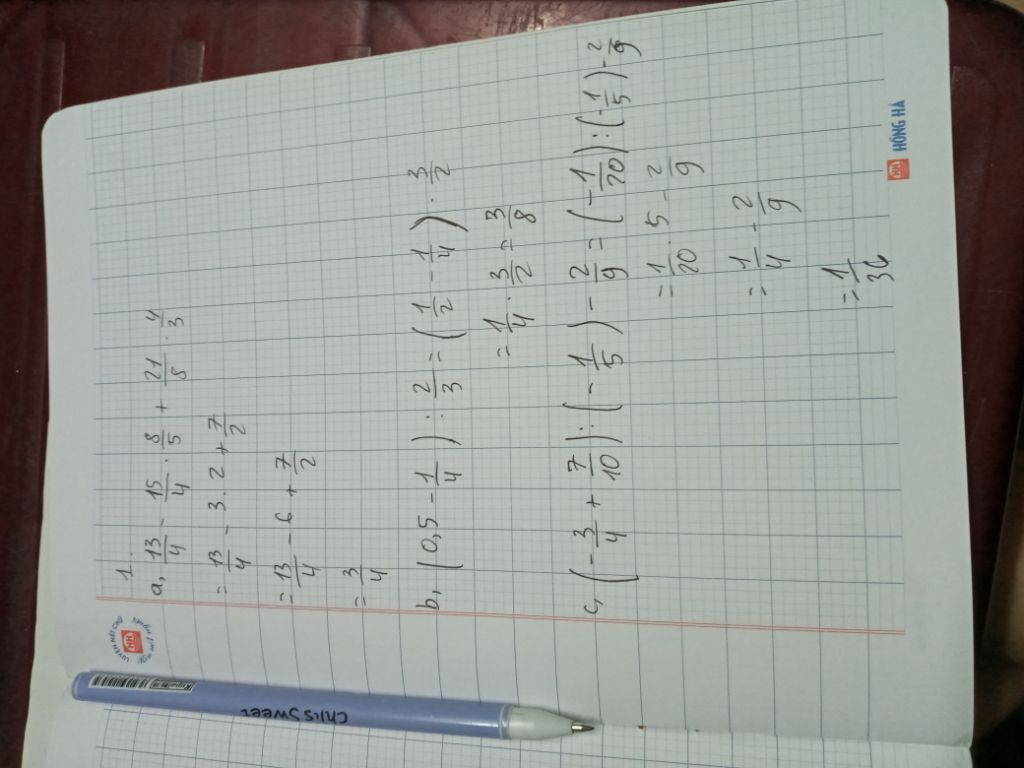 1.
a, 13/4 - 15/4 . 8/5 + 21/8 . 4/3
= 13/4 - 3 . 2 + 7/2
= 13/4 - 6 + 7/2
= 3/4
b, (0,5 - 1/4) : 2/3 = (1/2 - 1/4) . 3/2
= 1/4 . 3/2 = 3/8
c, (-3/4 + 7/10) : (-1/5) - 2/9 = (-1/20) : (-1/5) - 2/9
= 1/20 . 5 - 2/9
= 1/4 - 2/9
= 1/36
LUYỆN NÉT CHỮ
HỒNG HÀ
ChisSweet